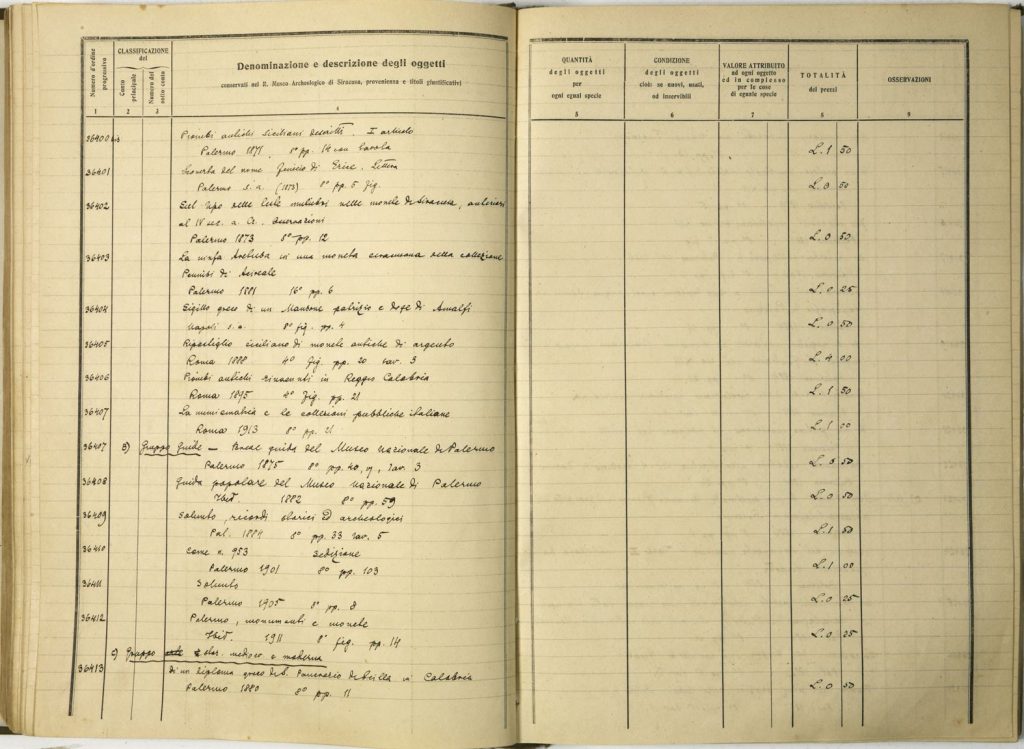 Numero d'ordine progressivo
CLASSIFICAZIONE del
Conto principale
Numero del sotto conto
Denominazione e descrizione degli oggetti
conservati nel R. Museo Archeologico di Siracusa, provenienza e titoli giustificativi
1 2 3 4
36400 bis Piombi antichi siciliani descritti. I articolo
Palermo 1871 8° pp. 14 con tavola
36401 Scoverta del nome fenicio di Erice. Lettera
Palermo s. a. (1873) 8° pp. 5 fig.
36402 Sul tipo delle teste muliebri nelle monete di Siracusa, anteriori
al IV sec. a. Cr. Osservazioni
Palermo 1873 8° pp. 12
36403 La ninfa Aretusa in una moneta siracusana della collezione
Pennisi di Acireale
Palermo 1881 16° pp. 6
36404 Sigillo greco di un Mansone patrizio e doge di Amalfi
Napoli s. a. 8° fig. pp. 4
36405 Ripostiglio siciliano di monete antiche di argento
Roma 1888 4° fig. pp. 20 tav. 3
36406 Piombi antichi rinvenuti in Reggio Calabria
Roma 1895 4° fig. pp. 21
36407 La numismatica e le collezioni pubbliche italiane
Roma 1913 8° pp. 21
36407 B) Gruppo Guide — Breve guida del Museo Nazionale di Palermo
Palermo 1875 8° pp. 40, tav. 3
36408 Guida popolare del Museo Nazionale di Palermo
Ibid. 1882 8° pp. 59
36409 Solunto, ricordi storici ed archeologici
Pal. 1884 8° pp. 33 tav. 5
36410 Come n. 953 edizione
Palermo 1901 8° pp. 103
36411 Solunto
Palermo 1905 8° pp. 8
36412 Palermo, monumenti e monete
Ibid. 1911 8° fig. pp. 14
c) Gruppo stor. medioev. e moderna
36413 Di un diploma greco di S. Pancrazio di Scilla in Calabria
Palermo 1880 8° pp. 11
QUANTITÀ
degli oggetti
per
ogni egual specie
CONDIZIONE
degli oggetti
cioè: se nuovi, usati,
od inservibili
VALORE ATTRIBUITO
ad ogni oggetto
ed in complesso
per le cose
di eguale specie
TOTALITÀ
dei prezzi
OSSERVAZIONI
5 6 7 8 9
L. 1 50
L. 0 50
L. 0 50
L. 0 25
L. 0 50
L. 4 00
L. 1 50
L. 1 00
L. 0 50
L. 0 50
L. 1 50
L. 1 00
L. 0 25
L. 0 25
L. 0 50